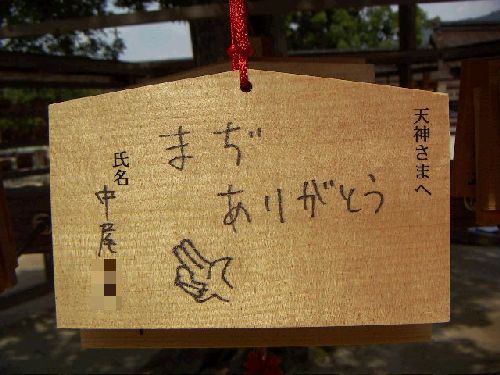 天神さまへ
まぢ
ありがとう
氏名
中尾